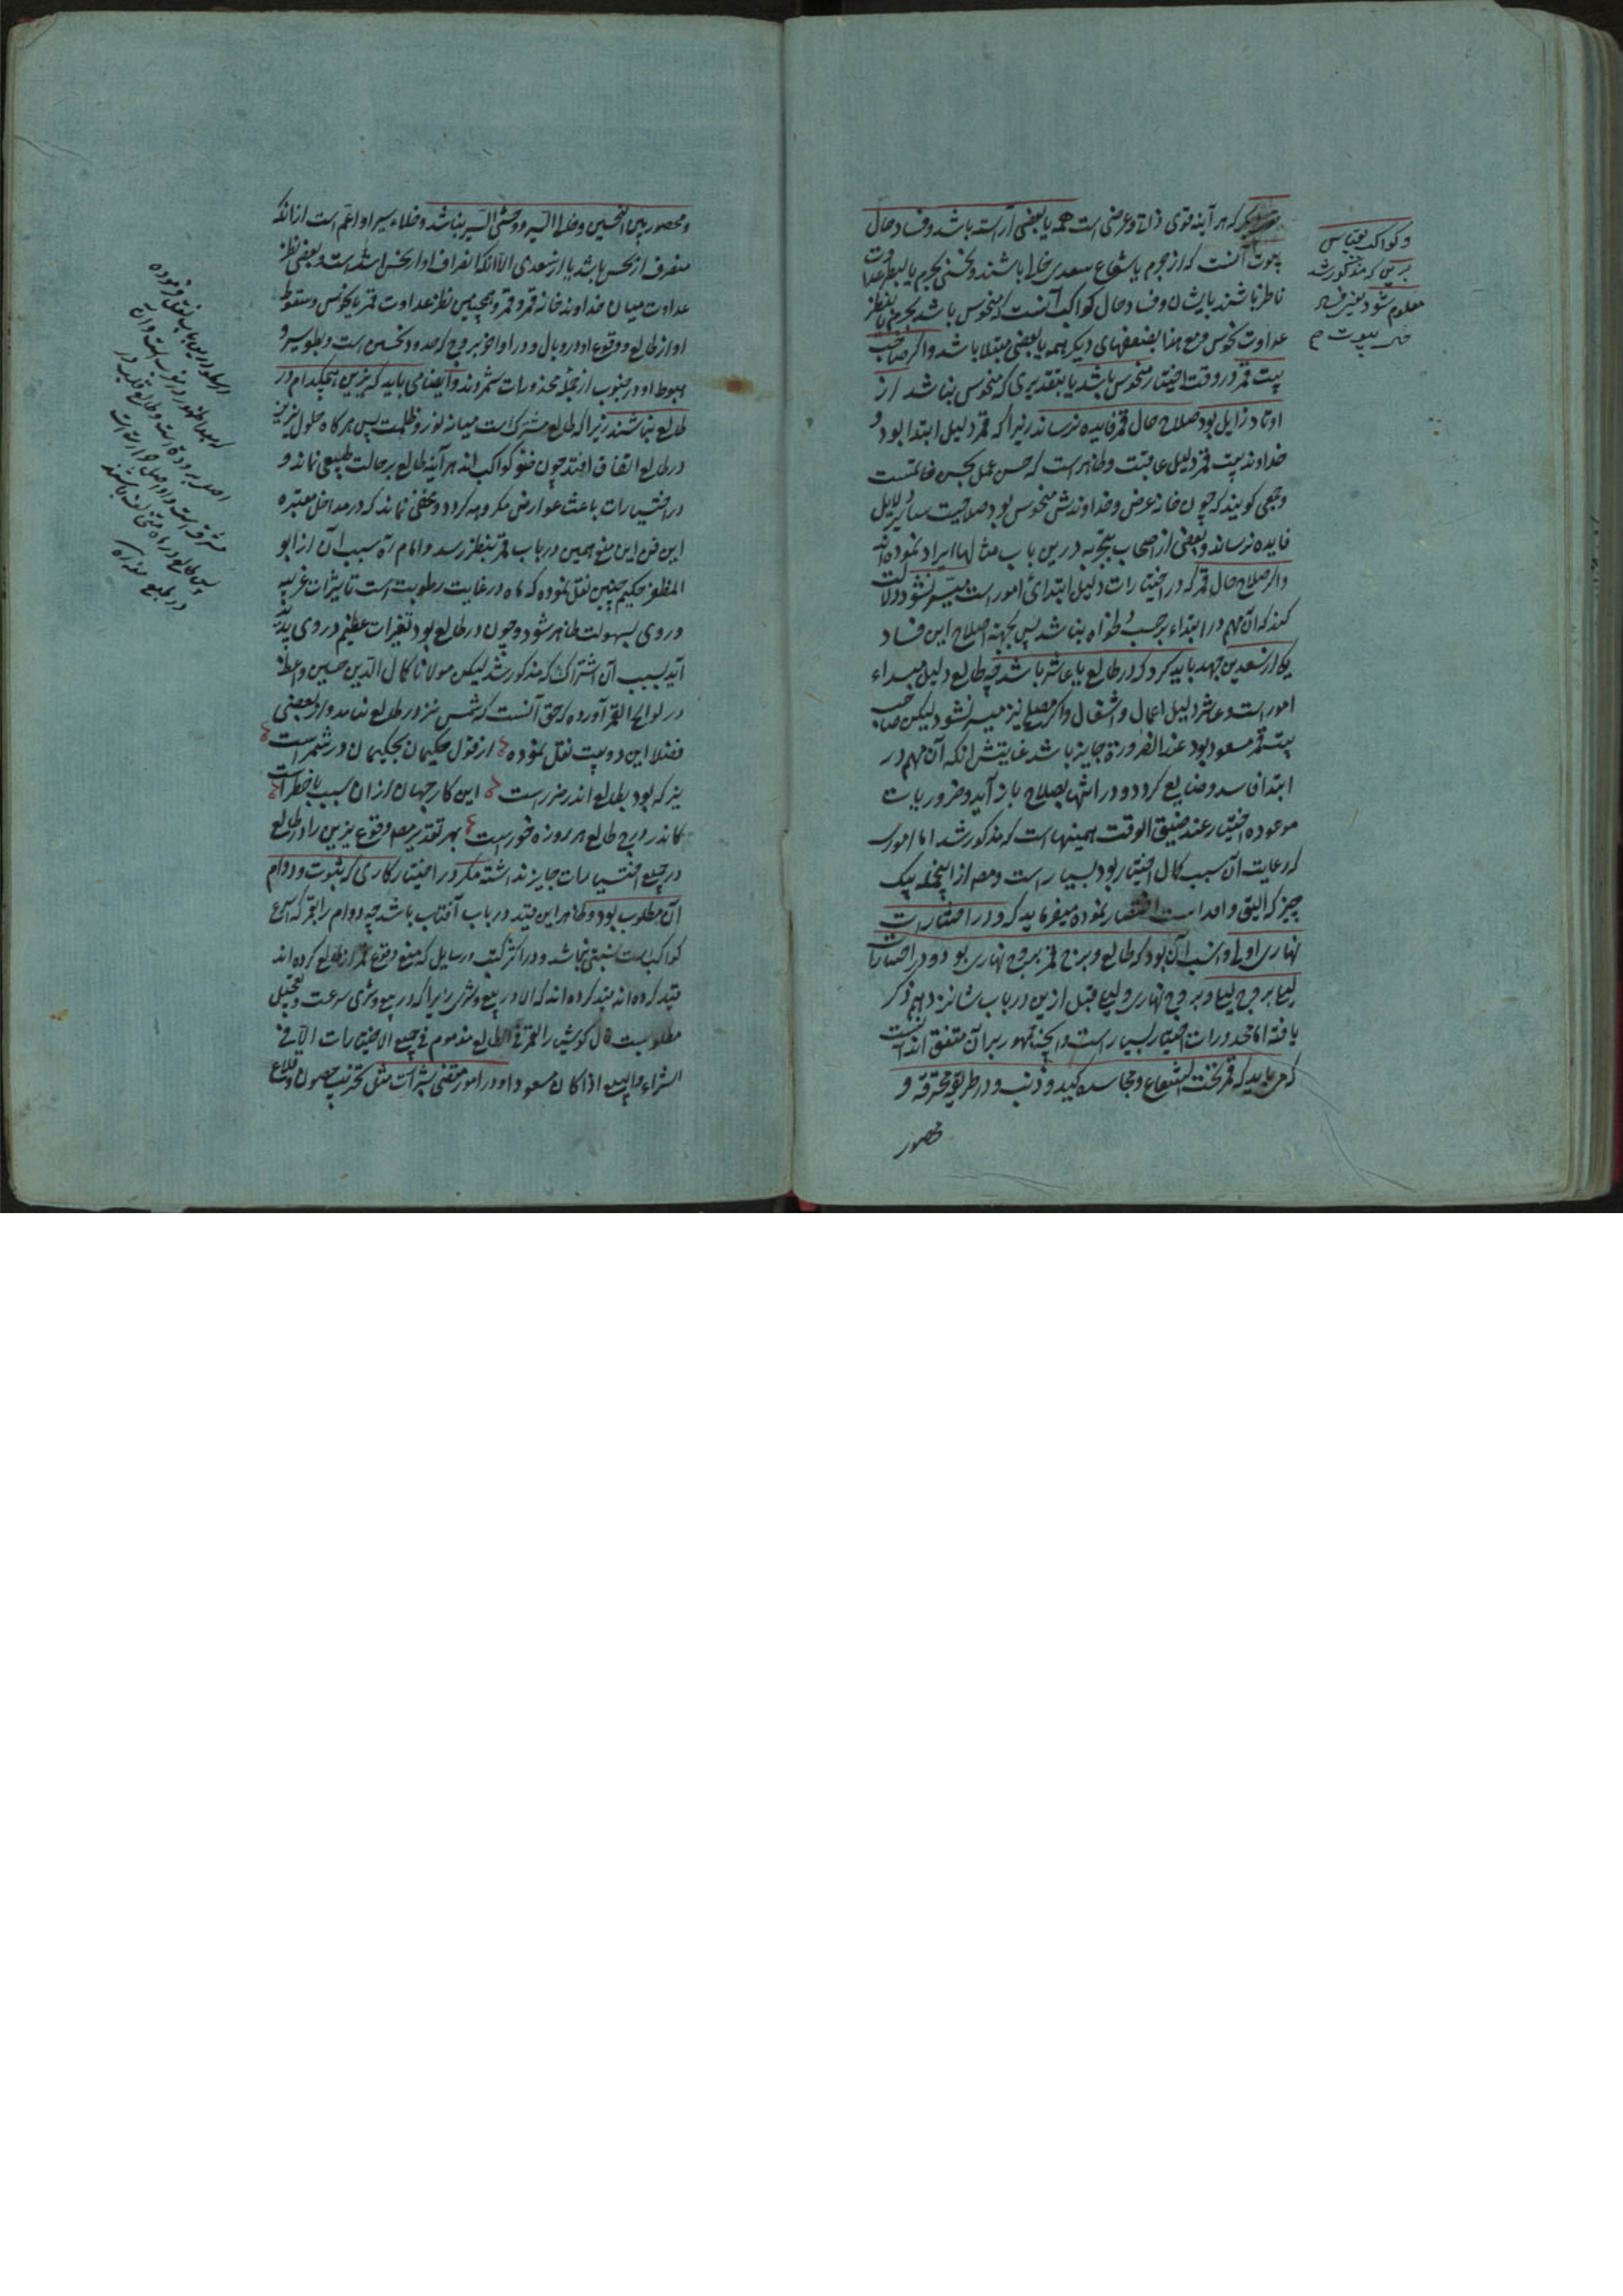 که هر آینه قوی ذاتی و عرضی است همه یا بعضی آراسته باشد و فساد حال
بیوت آنست که از جرم یا شعاع سعدی خالی باشند و نحسی بجرم یا بنظر عداوت
ناظر باشند بایشان و فساد حال کواکب آنست که منحوس باشد بجرم یا بنظر
عداوت نحوس و مع هذا بضعفهای دیگر همه یا بعضی مبتلا باشد و اگر صاحب
بیت قمر در وقت اختیار منحوس باشد یا بتقدیری که منحوس نباشد از
اوتاد زایل بود صلاح حال قمر فایده نرساند زیرا که قمر دلیل ابتدا بود و
خداوند بیت قمر دلیل عاقبت و ظاهر است که حسن عمل بحسن خاتمتست
و جمعی گویند که چون خانه غرض و خداوندش منحوس بود صلاحیت سایر دلایل
فایده نرساند و بعضی از اصحاب تجربه درین باب مثالها ایراد نموده اند
و اگر صلاح حال قمر که در اختیارات دلیل ابتدای امور است میسر نشود دلالت
کند که آن مهم در ابتداء بر حسب دلخواه نباشد پس بجهة اصلاح این فساد
یکی از سعدین جهد باید کرد که در طالع یا عاشر باشد چه طالع دلیل مبداء
امور است و عاشر دلیل اعمال و اشغال و اگر مصلح نیز میسر نشود لیکن صاحب
بیت قمر مسعود بود عند الضرورة جایز باشد غایتش آنکه آن مهم در
ابتدا فاسد و ضایع گردد و در انتها بصلاح باز آید و ضروریات
موعوده اختیار عند ضیق الوقت همینهاست که مذکور شد اما امور
که رعایت آن سبب کمال اختیار بود بسیار است و مص از اینجمله بیک
چیز که الیق و است اقتصار نموده میفرماید که و در اختیارات
نهاری اولی و انسب آن بود که طالع و برج قمر بروج نهاری بود و در اختیارات
لیلی بروج لیلی و بروج نهاری و لیلی قبل ازین در باب شانزدهم ذکر
یافته اما محذورات اختیار بسیار است و آنچه جمهور بر آن متفق اند آنست
که می باید که قمر تحت الشعاع و مجاسده کید و ذنب و در طریقه محترقه و
محصور
و کواکب بقیاس
برین که مذکور شد
معلوم شود یعنی فساد
بیوت
و محصور بین النحسین و خالی السیر و وحشی السیر نباشد و خلاء سیر او اعم است از آنکه
منصرف از نحس باشد یا از سعدی الا آنکه انصراف او از نحس اشد است و بعضی نظر
عداوت میان خداوند خانه قمر و قمر و همچنین نظر عداوت قمر با نحوس و سقوط
او از طالع و وقوع او در وبال و در اواخر بروج که حدود نحسین است و بطوء سیر و
هبوط او در جنوب از جمله محذورات شمردند و ایضا می باید که نیرین هیچکدام در
طالع نباشند زیرا که طالع مشترک است میانه نور و ظلمت پس هر گاه حلول نیرین
در طالع اتفاق افتد چون کواکب اند هر آینه طالع بر حالت طبیعی نماند و
در اختیارات باعث عوارض مکروهه گردد و مخفی نماند که در مداخل معتبره
این فن این منع همین در باب قمر بنظر رسد و امام ره سبب آن از ابو
المظفر حکیم چنین نقل نموده که ماه در غایت رطوبت است تاثیرات غریبه
در وی بسهولت ظاهر شود و چون در طالع بود تغیرات عظیم در وی پدید
آید بسبب آن اشتراک که مذکور شد لیکن مولانا کمال الدین حسین واعظ
در لوایح القمر آورده که حق آنست که شمس نیز در طالع نباید و از بعضی
فضلا این دو بیت نقل نموده از قول حکیمان بحکیمان در شمر است
نیر که بود بطالع اندر ضرر است این کار جهان از آن سبب با خطر است
کاندر درج طالع هر روزه خور است بهر تقدیر مص وقوع نیرین را در طالع
در جمیع اختیارات جایز نداشته مگر در اختیار کاری که ثبوت و دوام
آن مطلوب بود و ظاهر این قید در باب آفتاب باشد چه دوام را بقمر که اسرع
کواکب است نسبتی نباشد و در اکثر کتب و رسایل که منع وقوع قمر در طالع کرده اند
قید کرده اند که الا در بیع و شری زیرا که در بیع و شری سرعت و تعجیل
مطلوبست قال کوشیار القمر فی الطالع مذموم فی جمیع الاختیارات الا فی
الشراء و البیع اذا کان مسعودا و در امور مقتضی شر است مثل تخریب حصون و قلاع